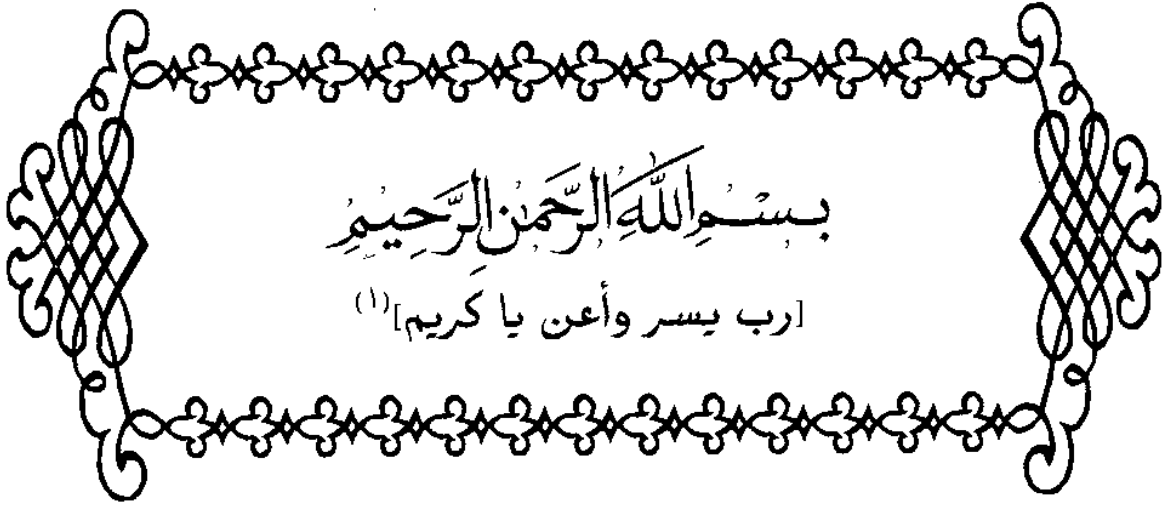 بِسْمِ اللَّهِ الرَّحْمَٰنِ الرَّحِيمِ
[رب يسر وأعن يا كريم](١)